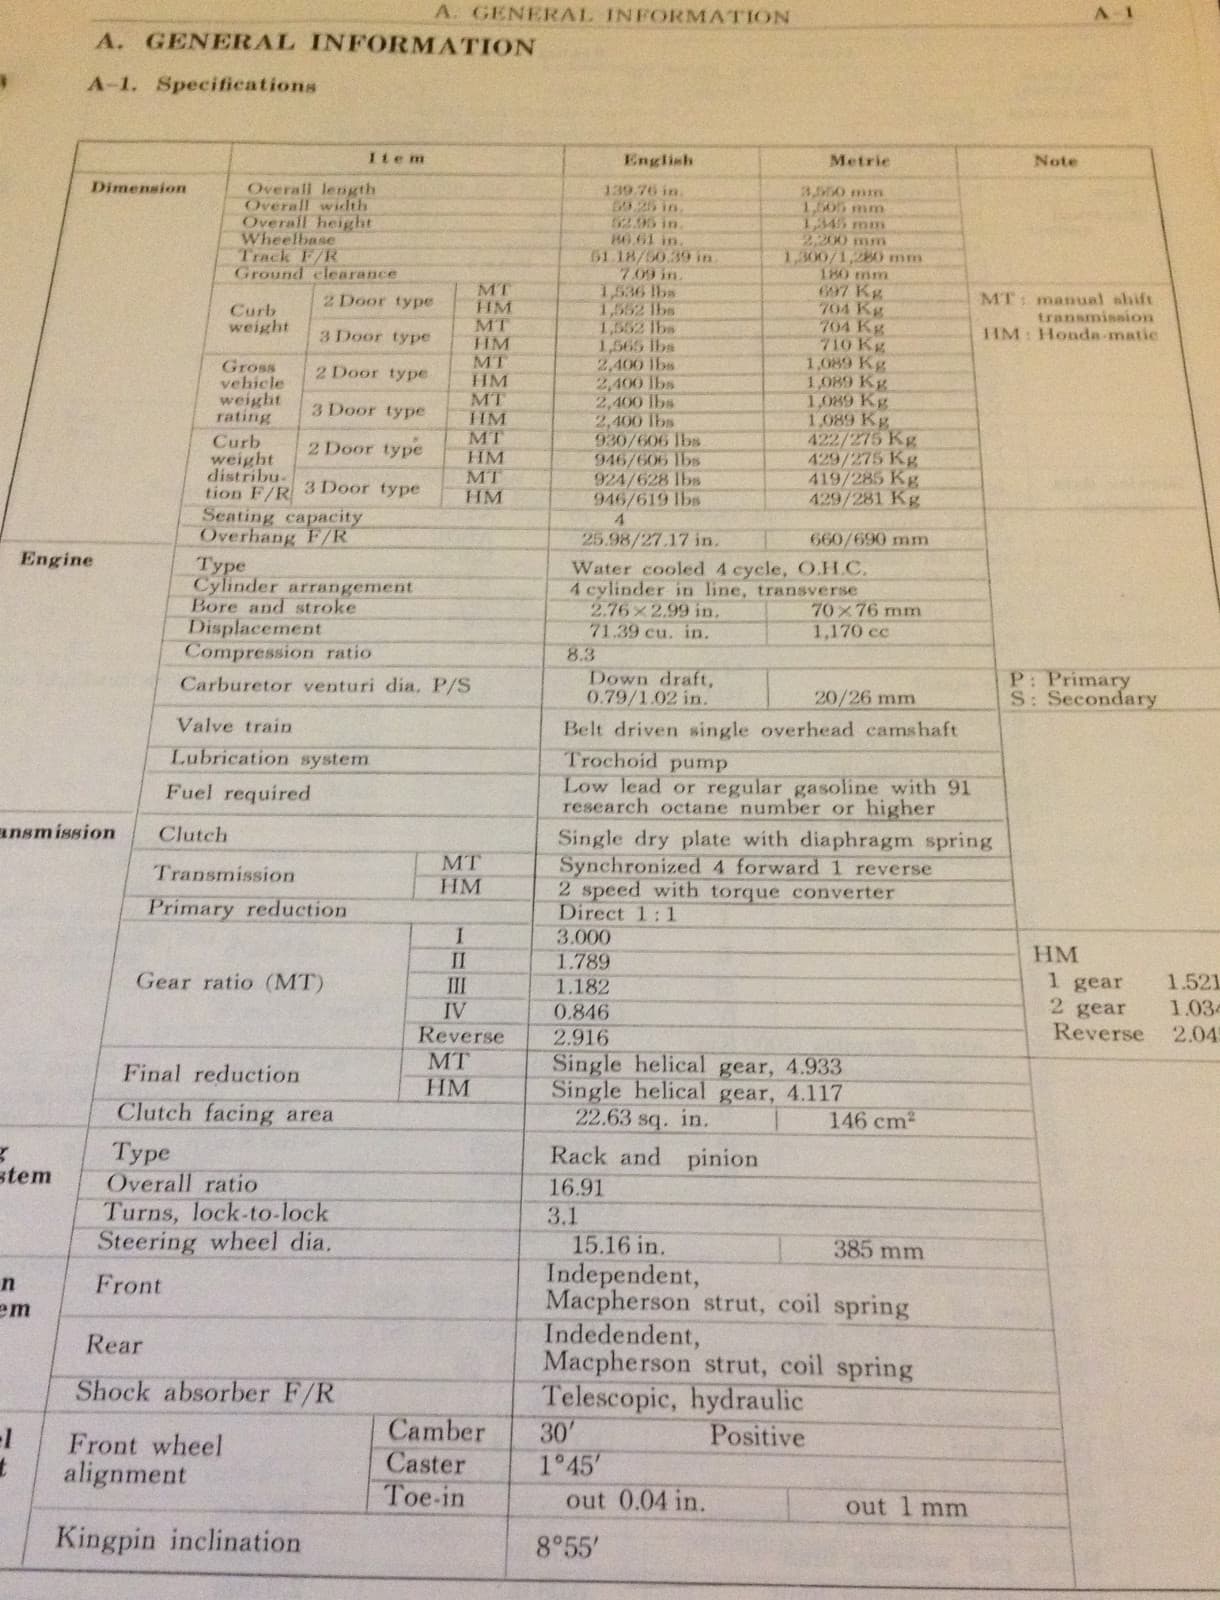 A. GENERAL INFORMATION A-1
A. GENERAL INFORMATION
A-1. Specifications
Item English Metric Note
Dimension Overall length 139.76 in. 3,550 mm
Overall width 59.25 in. 1,505 mm
Overall height 52.95 in. 1,345 mm
Wheelbase 86.61 in. 2,200 mm
Track F/R 51.18/50.39 in. 1,300/1,280 mm
Ground clearance 7.09 in. 180 mm
Curb weight 2 Door type MT 1,536 lbs 697 Kg MT : manual shift transmission
HM 1,552 lbs 704 Kg HM : Honda-matic
3 Door type MT 1,552 lbs 704 Kg
HM 1,565 lbs 710 Kg
Gross vehicle weight rating 2 Door type MT 2,400 lbs 1,089 Kg
HM 2,400 lbs 1,089 Kg
3 Door type MT 2,400 lbs 1,089 Kg
HM 2,400 lbs 1,089 Kg
Curb weight distribu-tion F/R 2 Door type MT 930/606 lbs 422/275 Kg
HM 946/606 lbs 429/275 Kg
3 Door type MT 924/628 lbs 419/285 Kg
HM 946/619 lbs 429/281 Kg
Seating capacity 4
Overhang F/R 25.98/27.17 in. 660/690 mm
Engine Type Water cooled 4 cycle, O.H.C.
Cylinder arrangement 4 cylinder in line, transverse
Bore and stroke 2.76×2.99 in. 70×76 mm
Displacement 71.39 cu. in. 1,170 cc
Compression ratio 8.3
Carburetor venturi dia. P/S Down draft, P : Primary
0.79/1.02 in. 20/26 mm S : Secondary
Valve train Belt driven single overhead camshaft
Lubrication system Trochoid pump
Fuel required Low lead or regular gasoline with 91
research octane number or higher
ansmission Clutch Single dry plate with diaphragm spring
Transmission MT Synchronized 4 forward 1 reverse
HM 2 speed with torque converter
Primary reduction Direct 1 : 1
Gear ratio (MT) I 3.000 HM
II 1.789
III 1.182 1 gear 1.521
IV 0.846 2 gear 1.034
Reverse 2.916 Reverse 2.04
Final reduction MT Single helical gear, 4.933
HM Single helical gear, 4.117
Clutch facing area 22.63 sq. in. 146 cm²
g
stem Type Rack and pinion
Overall ratio 16.91
Turns, lock-to-lock 3.1
Steering wheel dia. 15.16 in. 385 mm
n
em Front Independent,
Macpherson strut, coil spring
Rear Indedendent,
Macpherson strut, coil spring
Shock absorber F/R Telescopic, hydraulic
el
t Front wheel alignment Camber 30′ Positive
Caster 1°45′
Toe-in out 0.04 in. out 1 mm
Kingpin inclination 8°55′